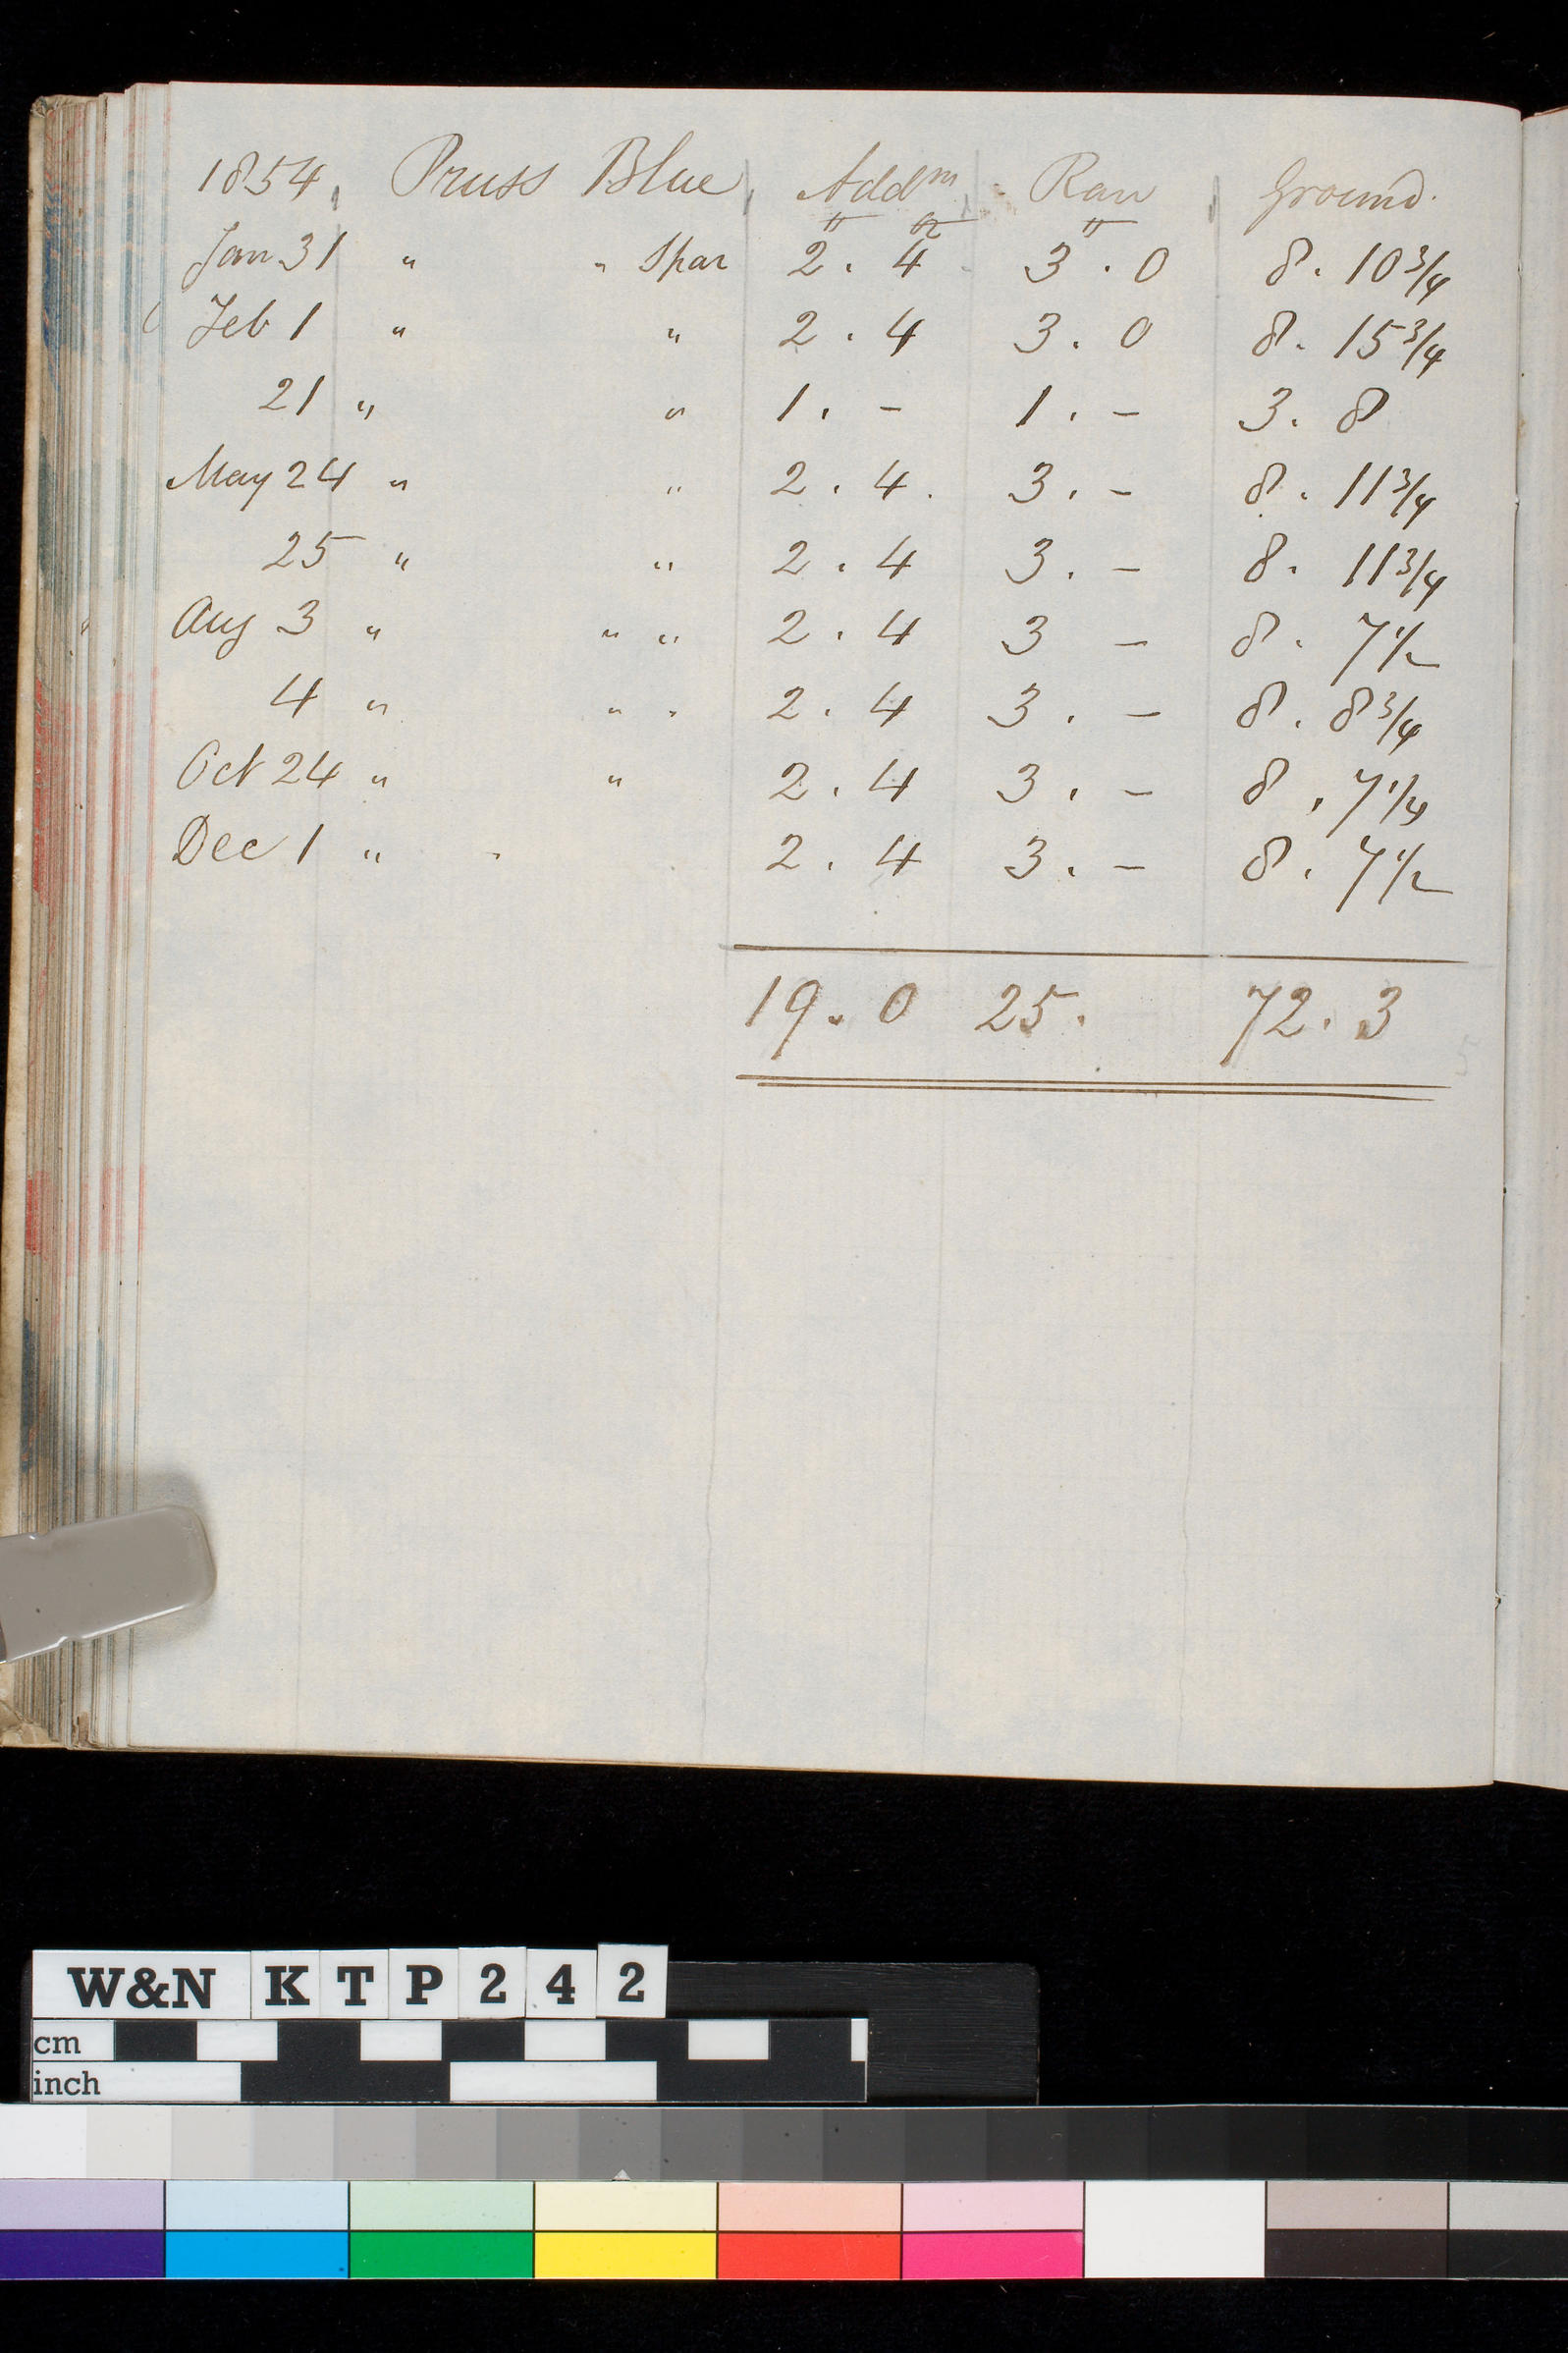 1854, Pruss Blue, Add^m Raw Ground.
Jan 31 " " Spar 2 . 4 3 . 0 8 . 10 3/4
Feb 1 " " 2 . 4 3 . 0 8 . 15 3/4
21 " " 1 . - 1 . - 3 . 8
May 24 " " 2 . 4 . 3 . - 8 . 11 3/4
25 " " 2 . 4 3 . - 8 . 11 3/4
Aug 3 " " " 2 . 4 3 - 8 . 7 1/2
4 " " " 2 . 4 3 . - 8 . 8 3/4
Oct 24 " " 2 . 4 3 . - 8 . 7 1/4
Dec 1 " " 2 . 4 3 . - 8 . 7 1/2
19 . 0 25 . 72 . 3
W&N K T P 2 4 2
cm
inch